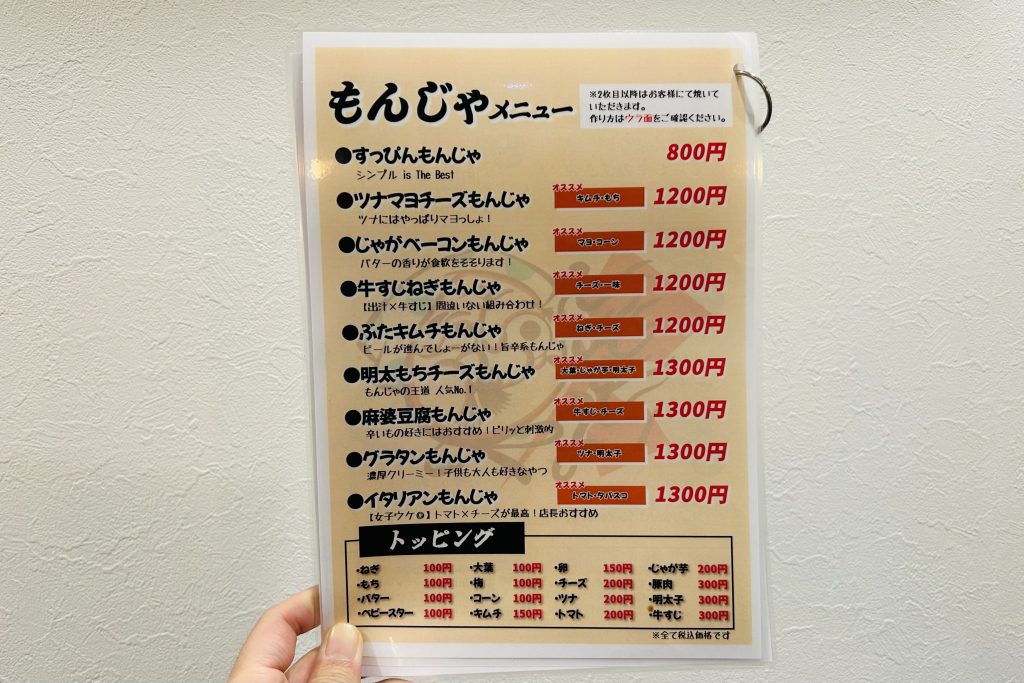 もんじゃメニュー
※2枚目以降はお客様にて焼いて
いただきます。
作り方はウラ面をご確認ください。
●すっぴんもんじゃ 800円
シンプル is The Best
●ツナマヨチーズもんじゃ オススメ キムチ・もち 1200円
ツナにはやっぱりマヨっしょ！
●じゃがベーコンもんじゃ オススメ マヨ・コーン 1200円
バターの香りが食欲をそそります！
●牛すじねぎもんじゃ オススメ チーズ・一味 1200円
【出汁×牛すじ】間違いない組み合わせ！
●ぶたキムチもんじゃ オススメ ねぎ・チーズ 1200円
ビールが進んでしょーがない！旨辛系もんじゃ
●明太もちチーズもんじゃ オススメ 大葉・じゃが芋・明太子 1300円
もんじゃの王道 人気No.1
●麻婆豆腐もんじゃ オススメ 牛すじ・チーズ 1300円
辛いもの好きにはおすすめ！ピリッと刺激的
●グラタンもんじゃ オススメ ツナ・明太子 1300円
濃厚クリーミー！子供も大人も好きなやつ
●イタリアンもんじゃ オススメ トマト・タバスコ 1300円
【女子ウケ◎】トマト×チーズが最高！店長おすすめ
トッピング
・ねぎ 100円 ・大葉 100円 ・卵 150円 ・じゃが芋 200円
・もち 100円 ・梅 100円 ・チーズ 200円 ・豚肉 300円
・バター 100円 ・コーン 100円 ・ツナ 200円 ・明太子 300円
・ベビースター 100円 ・キムチ 150円 ・トマト 200円 ・牛すじ 300円
※全て税込価格です